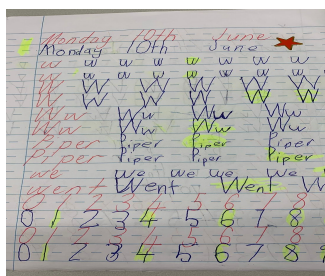 Monday 10th June
Monday 10th June
w w w w w w w
w w w w w w
W W W W W
W W W W W
Ww Ww Ww Ww
Ww Ww Ww Ww
Piper Piper Piper Piper
Piper Piper Piper Piper
we we we we we we
went Went Went W
0 1 2 3 4 5 6 7 8
0 1 2 3 4 5 6 7 8
0 1 2 3 4 5 6 7 8
0 1 2 3 4 5 6 7 8